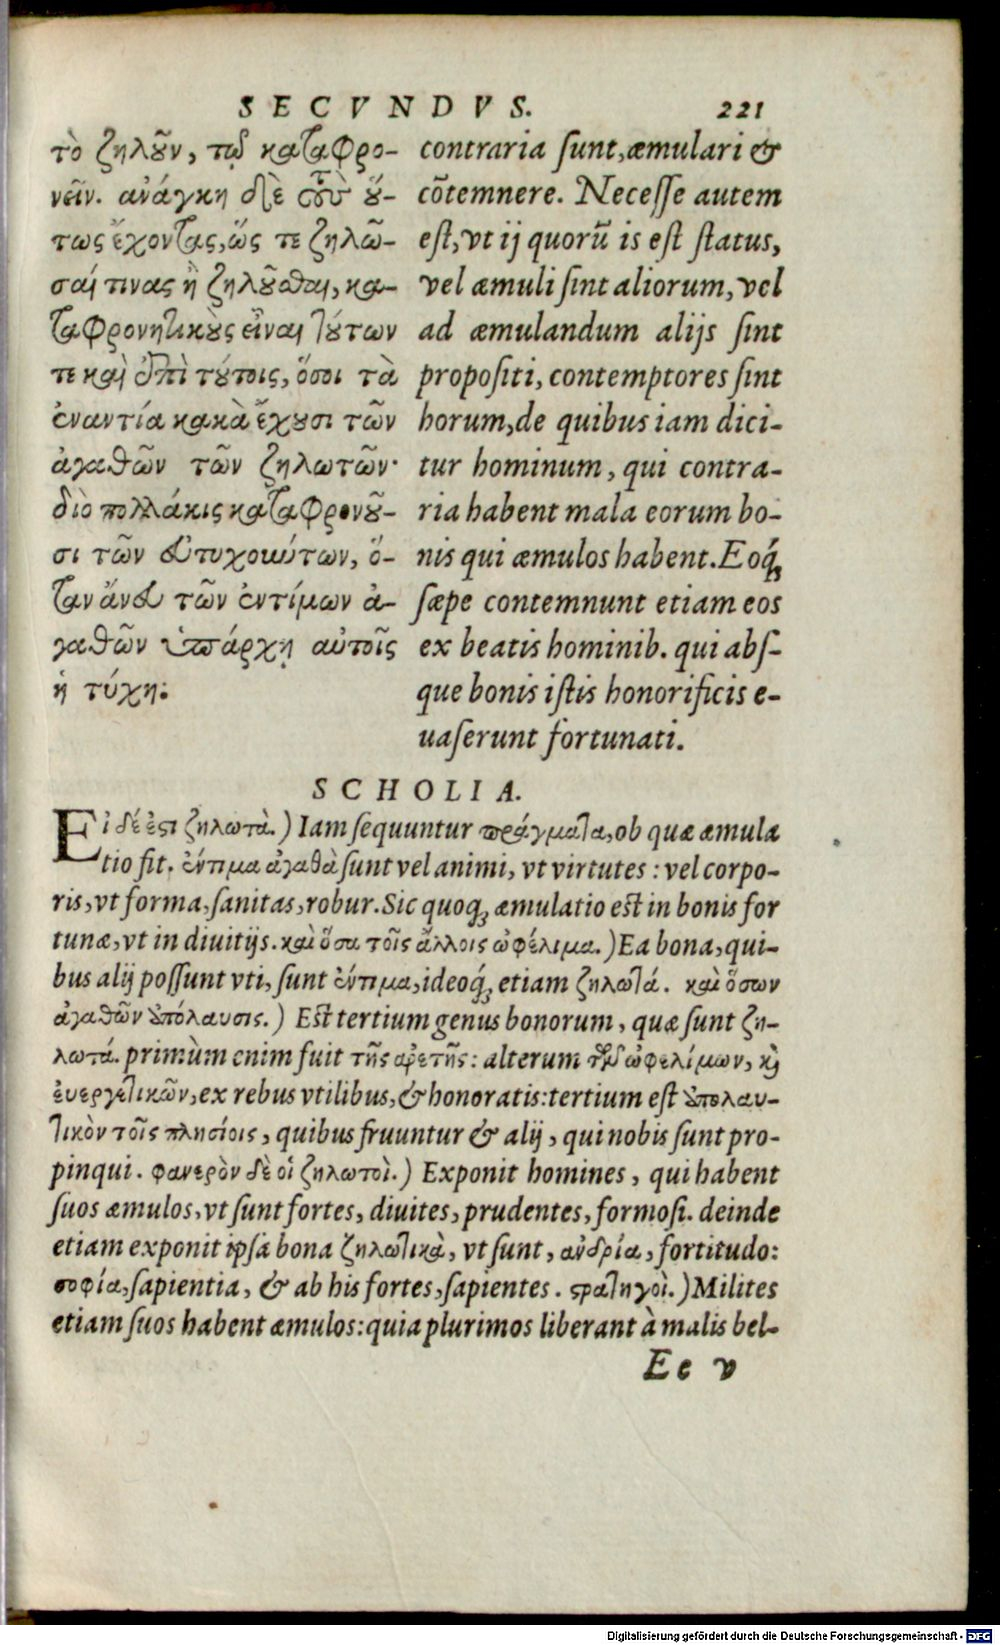 SECVNDVS. 221
τὸ ζηλοῦν, τῷ καταφρο-
νεῖν. ἀνάγκη δὲ τοὺς οὕ-
τως ἔχοντας, ὥς τε ζηλῶ-
σαί τινας ἢ ζηλοῦσθαι, κα-
ταφρονητικοὺς εἶναι τούτων
τε καὶ ἐπὶ τούτοις, ὅσοι τὰ
ἐναντία κακὰ ἔχουσι τῶν
ἀγαθῶν τῶν ζηλωτῶν·
διὸ πολλάκις καταφρονοῦ-
σι τῶν εὐτυχούντων, ὅ-
ταν ἄνευ τῶν ἐντίμων ἀ-
γαθῶν ὑπάρχῃ αὐτοῖς
ἡ τύχη:
contraria sunt, æmulari &
cōtemnere. Necesse autem
est, vt ij quorū is est status,
vel æmuli sint aliorum, vel
ad æmulandum alijs sint
propositi, contemptores sint
horum, de quibus iam dici-
tur hominum, qui contra-
ria habent mala eorum bo-
nis qui æmulos habent. Eoq́;
sæpe contemnunt etiam eos
ex beatis hominib. qui abs-
que bonis istis honorificis e-
uaserunt fortunati.
SCHOLIA.
Εἰ δέ ἐστι ζηλωτὰ.) Iam sequuntur πράγματα, ob quæ æmula
tio fit. ἔντιμα ἀγαθὰ sunt vel animi, vt virtutes: vel corpo-
ris, vt forma, sanitas, robur. Sic quoq; æmulatio est in bonis for
tunæ, vt in diuitijs. καὶ ὅσα τοῖς ἄλλοις ὠφέλιμα.) Ea bona, qui-
bus alij possunt vti, sunt ἔντιμα, ideoq́; etiam ζηλωτά. καὶ ὅσων
ἀγαθῶν ἀπόλαυσις.) Est tertium genus bonorum, quæ sunt ζη-
λωτά. primùm enim fuit τῆς ἀρετῆς: alterum τῶν ὠφελίμων, καὶ
ἐυεργετικῶν, ex rebus vtilibus, & honoratis: tertium est ἀπολαυ-
τικὸν τοῖς πλησίοις, quibus fruuntur & alij, qui nobis sunt pro-
pinqui. φανερὸν δὲ οἱ ζηλωτοὶ.) Exponit homines, qui habent
suos æmulos, vt sunt fortes, diuites, prudentes, formosi. deinde
etiam exponit ipsa bona ζηλωτικὰ, vt sunt, ἀνδρία, fortitudo:
σοφία, sapientia, & ab his fortes, sapientes. στρατηγοὶ.) Milites
etiam suos habent æmulos: quia plurimos liberant à malis bel-
Ee v
Digitalisierung gefördert durch die Deutsche Forschungsgemeinschaft - DFG